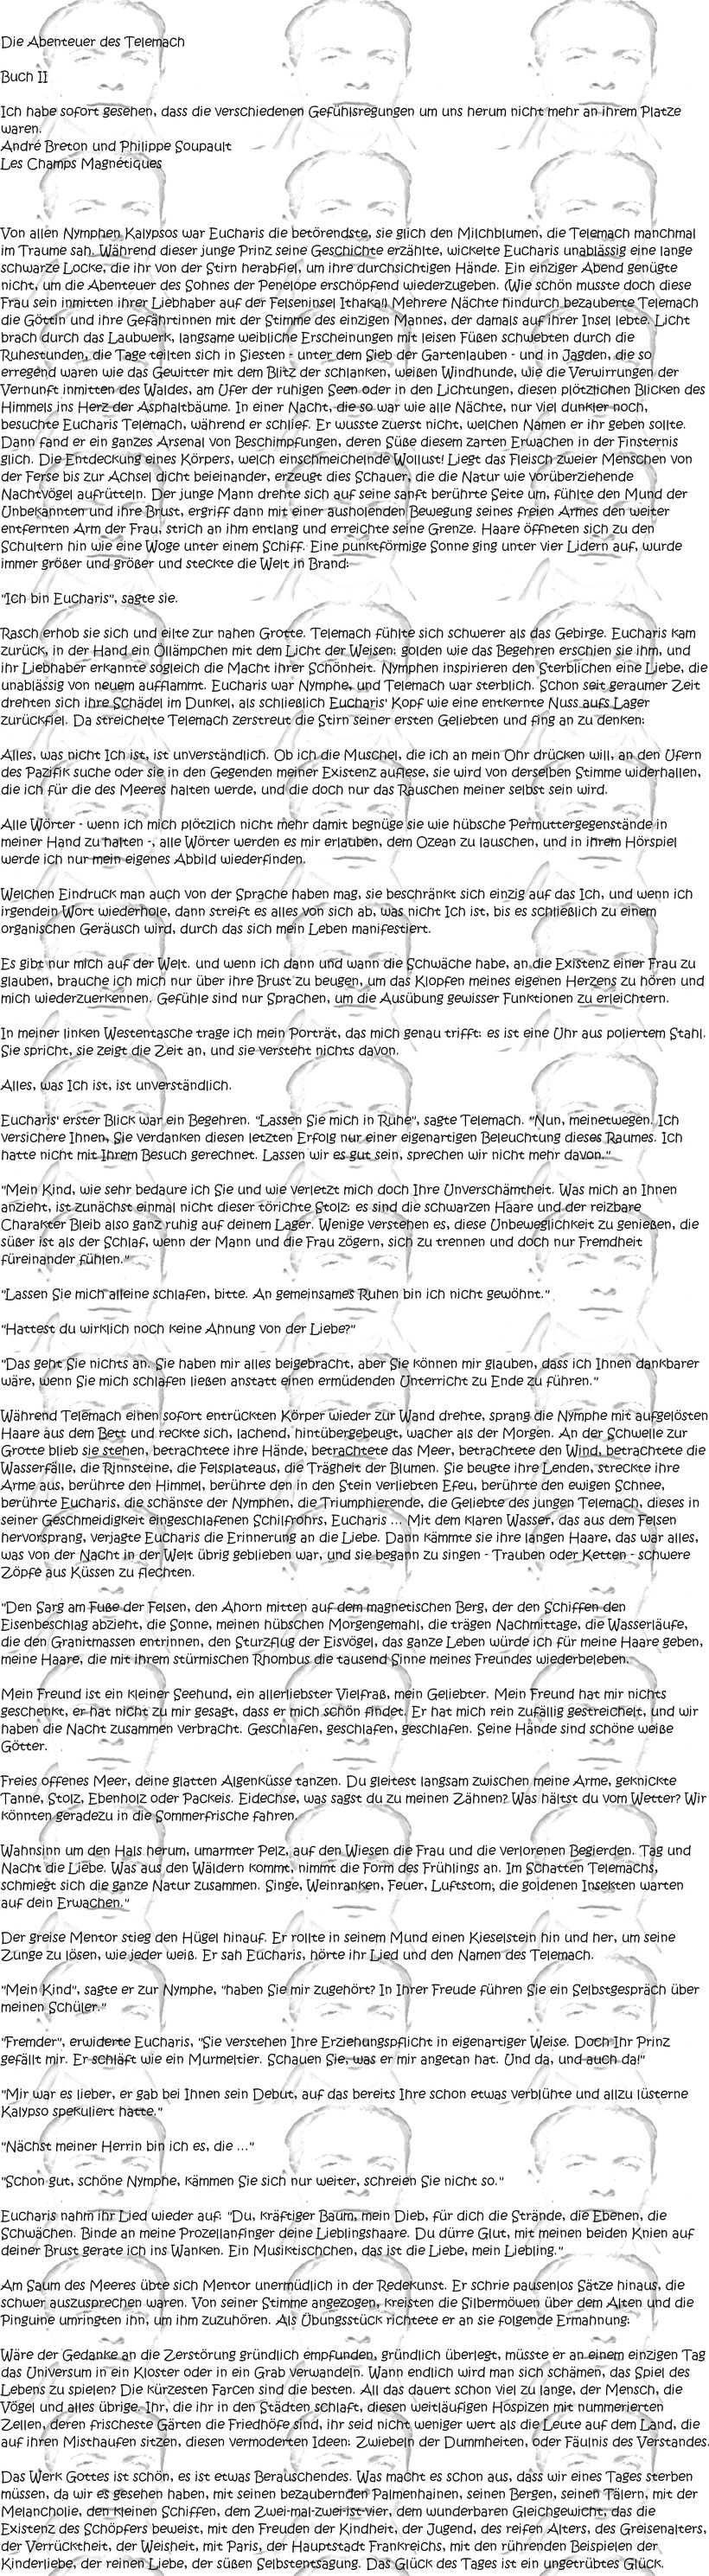 Die Abenteuer des Telemach
Buch II
Ich habe sofort gesehen, dass die verschiedenen Gefühlsregungen um uns herum nicht mehr an ihrem Platze
waren.
André Breton und Philippe Soupault
Les Champs Magnétiques
Von allen Nymphen Kalypsos war Eucharis die betörendste, sie glich den Milchblumen, die Telemach manchmal
im Traume sah. Während dieser junge Prinz seine Geschichte erzählte, wickelte Eucharis unablässig eine lange
schwarze Locke, die ihr von der Stirn herabfiel, um ihre durchsichtigen Hände. Ein einziger Abend genügte
nicht, um die Abenteuer des Sohnes der Penelope erschöpfend wiederzugeben. (Wie schön musste doch diese
Frau sein inmitten ihrer Liebhaber auf der Felseninsel Ithaka!) Mehrere Nächte hindurch bezauberte Telemach
die Göttin und ihre Gefährtinnen mit der Stimme des einzigen Mannes, der damals auf ihrer Insel lebte. Licht
brach durch das Laubwerk, langsame weibliche Erscheinungen mit leisen Füßen schwebten durch die
Ruhestunden, die Tage teilten sich in Siesten - unter dem Sieb der Gartenlauben - und in Jagden, die so
erregend waren wie das Gewitter mit dem Blitz der schlanken, weißen Windhunde, wie die Verwirrungen der
Vernunft inmitten des Waldes, am Ufer der ruhigen Seen oder in den Lichtungen, diesen plötzlichen Blicken des
Himmels ins Herz der Asphaltbäume. In einer Nacht, die so war wie alle Nächte, nur viel dunkler noch,
besuchte Eucharis Telemach, während er schlief. Er wusste zuerst nicht, welchen Namen er ihr geben sollte.
Dann fand er ein ganzes Arsenal von Beschimpfungen, deren Süße diesem zarten Erwachen in der Finsternis
glich. Die Entdeckung eines Körpers, welch einschmeichelnde Wollust! Liegt das Fleisch zweier Menschen von
der Ferse bis zur Achsel dicht beieinander, erzeugt dies Schauer, die die Natur wie vorüberziehende
Nachtvögel aufrütteln. Der junge Mann drehte sich auf seine sanft berührte Seite um, fühlte den Mund der
Unbekannten und ihre Brust, ergriff dann mit einer ausholenden Bewegung seines freien Armes den weiter
entfernten Arm der Frau, strich an ihm entlang und erreichte seine Grenze. Haare öffneten sich zu den
Schultern hin wie eine Woge unter einem Schiff. Eine punktförmige Sonne ging unter vier Lidern auf, wurde
immer größer und größer und steckte die Welt in Brand:
"Ich bin Eucharis", sagte sie.
Rasch erhob sie sich und eilte zur nahen Grotte. Telemach fühlte sich schwerer als das Gebirge. Eucharis kam
zurück, in der Hand ein Öllämpchen mit dem Licht der Weisen; golden wie das Begehren erschien sie ihm, und
ihr Liebhaber erkannte sogleich die Macht ihrer Schönheit. Nymphen inspirieren den Sterblichen eine Liebe, die
unablässig von neuem aufflammt. Eucharis war Nymphe, und Telemach war sterblich. Schon seit geraumer Zeit
drehten sich ihre Schädel im Dunkel, als schließlich Eucharis' Kopf wie eine entkernte Nuss aufs Lager
zurückfiel. Da streichelte Telemach zerstreut die Stirn seiner ersten Geliebten und fing an zu denken:
Alles, was nicht Ich ist, ist unverständlich. Ob ich die Muschel, die ich an mein Ohr drücken will, an den Ufern
des Pazifik suche oder sie in den Gegenden meiner Existenz auflese, sie wird von derselben Stimme widerhallen,
die ich für die des Meeres halten werde, und die doch nur das Rauschen meiner selbst sein wird.
Alle Wörter - wenn ich mich plötzlich nicht mehr damit begnüge sie wie hübsche Permuttergegenstände in
meiner Hand zu halten -, alle Wörter werden es mir erlauben, dem Ozean zu lauschen, und in ihrem Hörspiel
werde ich nur mein eigenes Abbild wiederfinden.
Welchen Eindruck man auch von der Sprache haben mag, sie beschränkt sich einzig auf das Ich, und wenn ich
irgendein Wort wiederhole, dann streift es alles von sich ab, was nicht Ich ist, bis es schließlich zu einem
organischen Geräusch wird, durch das sich mein Leben manifestiert.
Es gibt nur mich auf der Welt. und wenn ich dann und wann die Schwäche habe, an die Existenz einer Frau zu
glauben, brauche ich mich nur über ihre Brust zu beugen, um das Klopfen meines eigenen Herzens zu hören und
mich wiederzuerkennen. Gefühle sind nur Sprachen, um die Ausübung gewisser Funktionen zu erleichtern.
In meiner linken Westentasche trage ich mein Porträt, das mich genau trifft: es ist eine Uhr aus poliertem Stahl.
Sie spricht, sie zeigt die Zeit an, und sie versteht nichts davon.
Alles, was Ich ist, ist unverständlich.
Eucharis' erster Blick war ein Begehren. "Lassen Sie mich in Ruhe", sagte Telemach. "Nun, meinetwegen. Ich
versichere Ihnen, Sie verdanken diesen letzten Erfolg nur einer eigenartigen Beleuchtung dieses Raumes. Ich
hatte nicht mit Ihrem Besuch gerechnet. Lassen wir es gut sein, sprechen wir nicht mehr davon."
"Mein Kind, wie sehr bedaure ich Sie und wie verletzt mich doch Ihre Unverschämtheit. Was mich an Ihnen
anzieht, ist zunächst einmal nicht dieser törichte Stolz: es sind die schwarzen Haare und der reizbare
Charakter Bleib also ganz ruhig auf deinem Lager. Wenige verstehen es, diese Unbeweglichkeit zu genießen, die
süßer ist als der Schlaf, wenn der Mann und die Frau zögern, sich zu trennen und doch nur Fremdheit
füreinander fühlen."
"Lassen Sie mich alleine schlafen, bitte. An gemeinsames Ruhen bin ich nicht gewöhnt."
"Hattest du wirklich noch keine Ahnung von der Liebe?"
"Das geht Sie nichts an. Sie haben mir alles beigebracht, aber Sie können mir glauben, dass ich Ihnen dankbarer
wäre, wenn Sie mich schlafen ließen anstatt einen ermüdenden Unterricht zu Ende zu führen."
Während Telemach einen sofort entrückten Körper wieder zur Wand drehte, sprang die Nymphe mit aufgelösten
Haare aus dem Bett und reckte sich, lachend, hintübergebeugt, wacher als der Morgen. An der Schwelle zur
Grotte blieb sie stehen, betrachtete ihre Hände, betrachtete das Meer, betrachtete den Wind, betrachtete die
Wasserfälle, die Rinnsteine, die Felsplateaus, die Trägheit der Blumen. Sie beugte ihre Lenden, streckte ihre
Arme aus, berührte den Himmel, berührte den in den Stein verliebten Efeu, berührte den ewigen Schnee,
berührte Eucharis, die schänste der Nymphen, die Triumphierende, die Geliebte des jungen Telemach, dieses in
seiner Geschmeidigkeit eingeschlafenen Schilfrohrs, Eucharis ... Mit dem klaren Wasser, das aus dem Felsen
hervorsprang, verjagte Eucharis die Erinnerung an die Liebe. Dann kämmte sie ihre langen Haare, das war alles,
was von der Nacht in der Welt übrig geblieben war, und sie begann zu singen - Trauben oder Ketten - schwere
Zöpfe aus Küssen zu flechten.
"Den Sarg am Fuße der Felsen, den Ahorn mitten auf dem magnetischen Berg, der den Schiffen den
Eisenbeschlag abzieht, die Sonne, meinen hübschen Morgengemahl, die trägen Nachmittage, die Wasserläufe,
die den Granitmassen entrinnen, den Sturzflug der Eisvögel, das ganze Leben würde ich für meine Haare geben,
meine Haare, die mit ihrem stürmischen Rhombus die tausend Sinne meines Freundes wiederbeleben.
Mein Freund ist ein kleiner Seehund, ein allerliebster Vielfraß, mein Geliebter. Mein Freund hat mir nichts
geschenkt, er hat nicht zu mir gesagt, dass er mich schön findet. Er hat mich rein zufällig gestreichelt, und wir
haben die Nacht zusammen verbracht. Geschlafen, geschlafen, geschlafen. Seine Hände sind schöne weiße
Götter.
Freies offenes Meer, deine glatten Algenküsse tanzen. Du gleitest langsam zwischen meine Arme, geknickte
Tanne, Stolz, Ebenholz oder Packeis. Eidechse, was sagst du zu meinen Zähnen? Was hältst du vom Wetter? Wir
könnten geradezu in die Sommerfrische fahren.
Wahnsinn um den Hals herum, umarmter Pelz, auf den Wiesen die Frau und die verlorenen Begierden. Tag und
Nacht die Liebe. Was aus den Wäldern kommt, nimmt die Form des Frühlings an. Im Schatten Telemachs,
schmiegt sich die ganze Natur zusammen. Singe, Weinranken, Feuer, Luftstom; die goldenen Insekten warten
auf dein Erwachen."
Der greise Mentor stieg den Hügel hinauf. Er rollte in seinem Mund einen Kieselstein hin und her, um seine
Zunge zu lösen, wie jeder weiß. Er sah Eucharis, hörte ihr Lied und den Namen des Telemach.
"Mein Kind", sagte er zur Nymphe, "haben Sie mir zugehört? In Ihrer Freude führen Sie ein Selbstgespräch über
meinen Schüler."
"Fremder", erwiderte Eucharis, "Sie verstehen Ihre Erziehungspflicht in eigenartiger Weise. Doch Ihr Prinz
gefällt mir. Er schläft wie ein Murmeltier. Schauen Sie, was er mir angetan hat. Und da, und auch da!"
"Mir war es lieber, er gab bei Ihnen sein Debut, auf das bereits Ihre schon etwas verblühte und allzu lüsterne
Kalypso spekuliert hatte."
"Nächst meiner Herrin bin ich es, die ..."
"Schon gut, schöne Nymphe, kämmen Sie sich nur weiter, schreien Sie nicht so."
Eucharis nahm ihr Lied wieder auf: "Du, kräftiger Baum, mein Dieb, für dich die Strände, die Ebenen, die
Schwächen. Binde an meine Prozellanfinger deine Lieblingshaare. Du dürre Glut, mit meinen beiden Knien auf
deiner Brust gerate ich ins Wanken. Ein Musiktischchen, das ist die Liebe, mein Liebling."
Am Saum des Meeres übte sich Mentor unermüdlich in der Redekunst. Er schrie pausenlos Sätze hinaus, die
schwer auszusprechen waren. Von seiner Stimme angezogen, kreisten die Silbermöwen über dem Alten und die
Pinguine umringten ihn, um ihm zuzuhören. Als Übungsstück richtete er an sie folgende Ermahnung:
Wäre der Gedanke an die Zerstörung gründlich empfunden, gründlich überlegt, müsste er an einem einzigen Tag
das Universum in ein Kloster oder in ein Grab verwandeln. Wann endlich wird man sich schämen, das Spiel des
Lebens zu spielen? Die kürzesten Farcen sind die besten. All das dauert schon viel zu lange, der Mensch, die
Vögel und alles übrige. Ihr, die ihr in den Städten schlaft, diesen weitläufigen Hospizen mit nummerierten
Zellen, deren frischeste Gärten die Friedhöfe sind, ihr seid nicht weniger wert als die Leute auf dem Land, die
auf ihren Misthaufen sitzen, diesen vermoderten Ideen: Zwiebeln der Dummheiten, oder Fäulnis des Verstandes.
Das Werk Gottes ist schön, es ist etwas Berauschendes. Was macht es schon aus, dass wir eines Tages sterben
müssen, da wir es gesehen haben, mit seinen bezaubernden Palmenhainen, seinen Bergen, seinen Tälern, mit der
Melancholie, den kleinen Schiffen, dem Zwei-mal-zwei-ist-vier, dem wunderbaren Gleichgewicht, das die
Existenz des Schöpfers beweist, mit den Freuden der Kindheit, der Jugend, des reifen Alters, des Greisenalters,
der Verrücktheit, der Weisheit, mit Paris, der Hauptstadt Frankreichs, mit den rührenden Beispielen der
Kinderliebe, der reinen Liebe, der süßen Selbstentsagung. Das Glück des Tages ist ein ungetrübtes Glück.